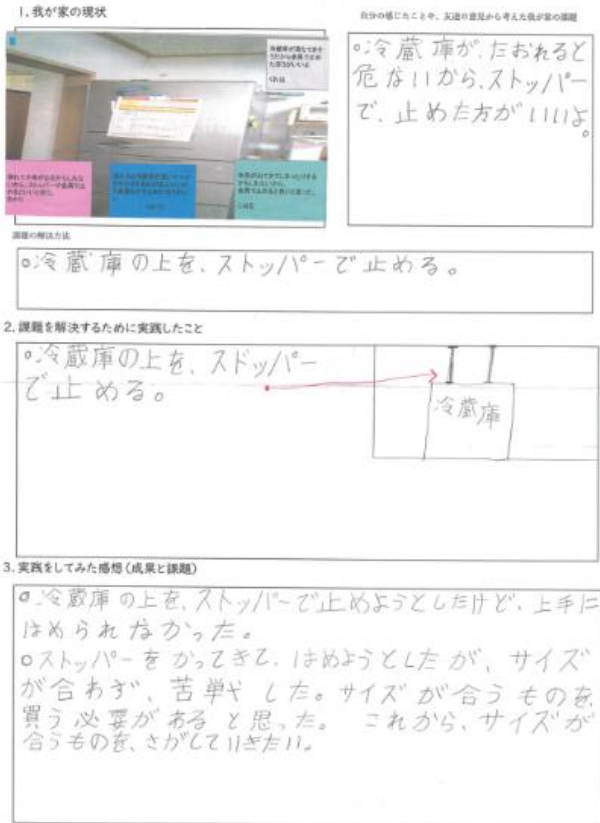 1. 我が家の現状
自分の感じたことや、友達の意見から考えた我が家の課題
○冷蔵庫が、たおれると
危ないから、ストッパー
で、止めた方がいいよ。
課題の解決方法
○冷蔵庫の上を、ストッパーで止める。
2. 課題を解決するために実践したこと
○冷蔵庫の上を、ストッパー
で止める。
冷蔵庫
3. 実践をしてみた感想(成果と課題)
○冷蔵庫の上を、ストッパーで止めようとしたけど、上手に
はめられなかった。
○ストッパーをかってきて、はめようとしたが、サイズ
が合わず、苦戦した。サイズが合うものを、
買う必要があると思った。これから、サイズが
合うものを、さがしていきたい。